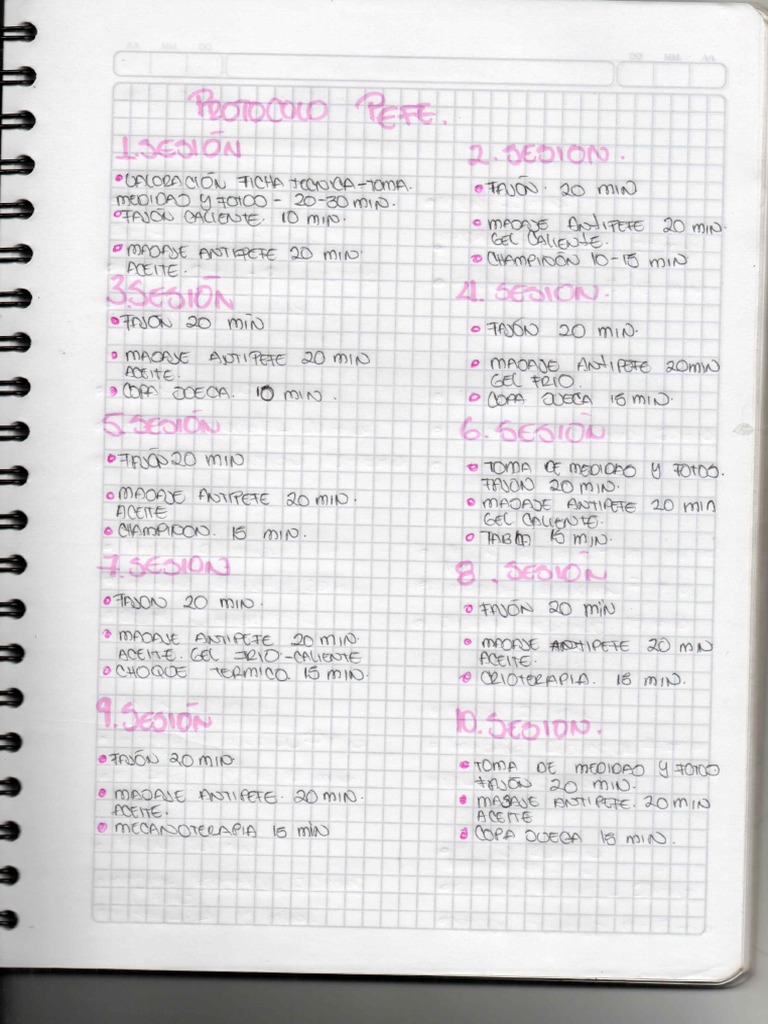 PROTOCOLO PEFE.
1. SESIÓN
• VALORACIÓN FICHA TECNICA-TOMA.
MEDIDAS Y FOTOS - 20-30 MIN.
• FAJÓN CALIENTE. 10 MIN.
• MASAJE ANTIPEFE 20 MIN
ACEITE.
2. SESION.
• FAJÓN. 20 MIN
• MASAJE ANTIPEFE 20 MIN.
GEL CALIENTE.
• CHAMPIÑÓN 10-15 MIN
3. SESIÓN
• FAJÓN 20 MIN
• MASAJE ANTIPEFE 20 MIN
ACEITE.
• COPA SUECA. 10 MIN.
4. SESION.
• FAJÓN 20 MIN.
• MASAJE ANTIPEFE 20MIN
GEL FRIO.
• COPA SUECA 15 MIN.
5. SESIÓN
• FAJÓN 20 MIN
• MASAJE ANTIPEFE 20 MIN.
ACEITE
• CHAMPIÑON. 15 MIN.
6. SESIÓN
• TOMA DE MEDIDAS Y FOTOS.
FAJÓN 20 MIN.
• MASAJE ANTIPEFE 20 MIN
GEL CALIENTE.
• 15 MIN.
7. SESION
• FAJON 20 MIN.
• MASAJE ANTIPEFE 20 MIN.
ACEITE. GEL FRIO-CALIENTE
• CHOQUE TERMICO 15 MIN.
8. SESIÓN
• FAJÓN 20 MIN
• MASAJE ANTIPEFE 20 MIN
ACEITE.
• CRIOTERAPIA. 15 MIN.
9. SESIÓN
• FAJÓN 20 MIN.
• MASAJE ANTIPEFE. 20 MIN.
ACEITE.
• MECANOTERAPIA 15 MIN
10. SESION.
• TOMA DE MEDIDAS Y FOTOS
FAJÓN 20 MIN.
• MASAJE ANTIPEFE. 20 MIN
ACEITE
• COPA SUECA 15 MIN.